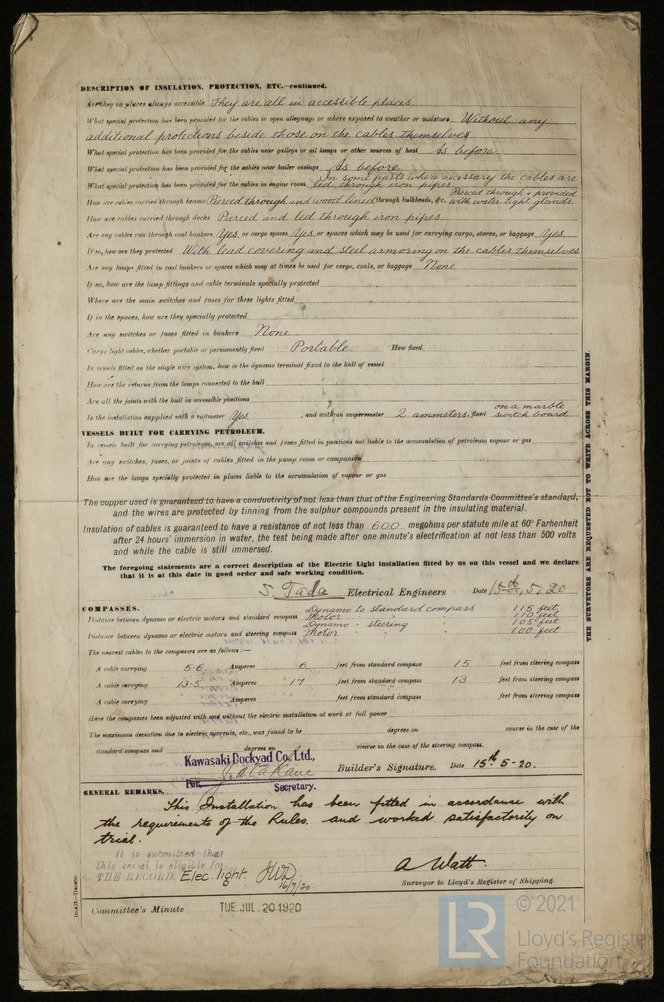 DESCRIPTION OF INSULATION, PROTECTION, ETC.—continued.
Are they in places always accessible They are all in accessible places.
What special protection has been provided for the cables in open alleyways or where exposed to weather or moisture Without any
additional protections beside those on the cables themselves.
What special protection has been provided for the cables near galleys or oil lamps or other sources of heat As before.
What special protection has been provided for the cables near boiler casings As before.
What special protection has been provided for the cables in engine room In some parts where necessary the cables are led through iron pipes.
How are cables carried through beams Pierced through and wood lined through bulkheads, &c. Pierced through & provided with water tight glands.
How are cables carried through decks Pierced and led through iron pipes.
Are any cables run through coal bunkers Yes or cargo spaces Yes or spaces which may be used for carrying cargo, stores, or baggage Yes.
If so, how are they protected With lead covering and steel armoring on the cables themselves.
Are any lamps fitted in coal bunkers or spaces which may at times be used for cargo, coals, or baggage None
If so, how are the lamp fittings and cable terminals specially protected
Where are the main switches and fuses for these lights fitted
If in the spaces, how are they specially protected
Are any switches or fuses fitted in bunkers None.
Cargo light cables, whether portable or permanently fixed Portable. How fixed
In vessels fitted on the single wire system, how is the dynamo terminal fixed to the hull of vessel
How are the returns from the lamps connected to the hull
Are all the joints with the hull in accessible positions
Is the installation supplied with a voltmeter Yes, and with an amperemeter 2 ammeters, fixed on a marble switch board.
VESSELS BUILT FOR CARRYING PETROLEUM.
In vessels built for carrying petroleum, are all switches and fuses fitted in positions not liable to the accumulation of petroleum vapour or gas
Are any switches, fuses, or joints of cables fitted in the pump room or companion
How are the lamps specially protected in places liable to the accumulation of vapour or gas
The copper used is guaranteed to have a conductivity of not less than that of the Engineering Standards Committee's standard,
and the wires are protected by tinning from the sulphur compounds present in the insulating material.
Insulation of cables is guaranteed to have a resistance of not less than 600 megohms per statute mile at 60° Farhenheit
after 24 hours' immersion in water, the test being made after one minute's electrification at not less than 500 volts
and while the cable is still immersed.
The foregoing statements are a correct description of the Electric Light installation fitted by us on this vessel and we declare
that it is at this date in good order and safe working condition.
S. Tada Electrical Engineers Date 15th, 5, 20
COMPASSES.
Distance between dynamo or electric motors and standard compass Dynamo to standard compass 115 feet
Motor 110 feet
Distance between dynamo or electric motors and steering compass Dynamo - steering 105 feet
Motor 100 feet
The nearest cables to the compasses are as follows:—
A cable carrying 5.6 Amperes 6 feet from standard compass 15 feet from steering compass
A cable carrying 13.5 Amperes 17 feet from standard compass 13 feet from steering compass
A cable carrying Amperes feet from standard compass feet from steering compass
Have the compasses been adjusted with and without the electric installation at work at full power
The maximum deviation due to electric currents, etc., was found to be degrees on course in the case of the
standard compass and degrees on course in the case of the steering compass.
Kawasaki Dockyad Co., Ltd.,
Builder's Signature. Date 15th 5-20.
Per. Secretary.
GENERAL REMARKS.
This Installation has been fitted in accordance with
the requirements of the Rules and worked satisfactorily on
trial.
It is submitted that
this vessel is eligible for
THE RECORD. Elec. light. JWD 16/7/20
A Watt.
Surveyor to Lloyd's Register of Shipping.
Committee's Minute TUE. JUL 20 1920
THE SURVEYORS ARE REQUESTED NOT TO WRITE ACROSS THIS MARGIN.
LR
© 2021
Lloyd's Register
Foundation